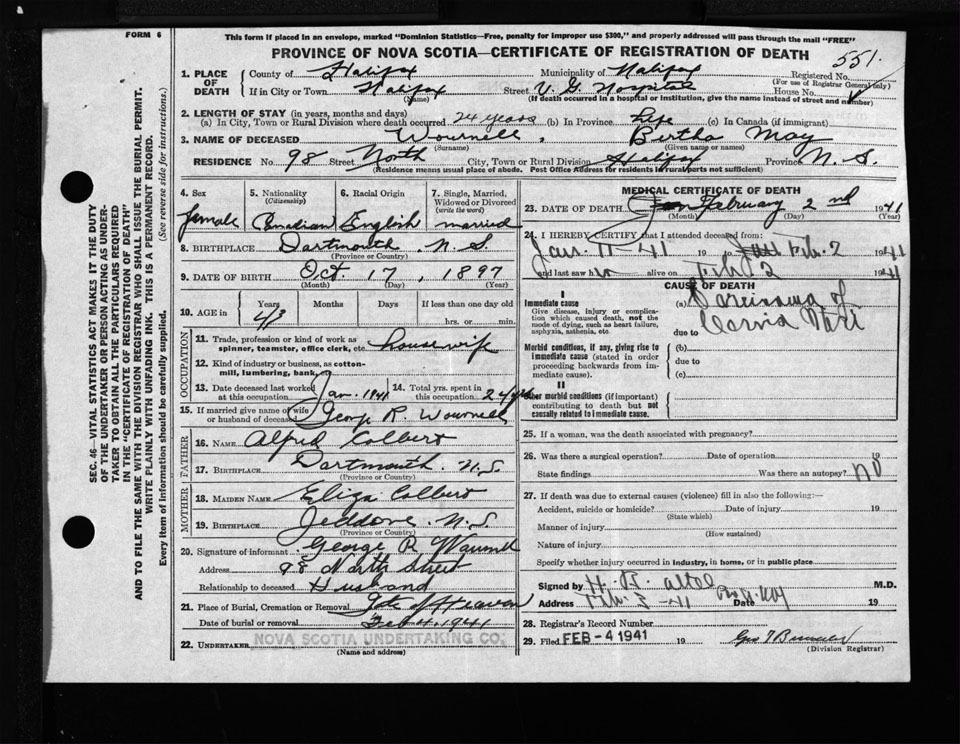 FORM 6
This form if placed in an envelope, marked "Dominion Statistics—Free, penalty for improper use $300," and properly addressed will pass through the mail "FREE"
PROVINCE OF NOVA SCOTIA—CERTIFICATE OF REGISTRATION OF DEATH
551.
1. PLACE OF DEATH
County of Halifax Municipality of Halifax Registered No.
(For use of Registrar General only)
If in City or Town Halifax Street V. G. Hospital House No.
(Name) (If death occurred in a hospital or institution, give the name instead of street and number)
2. LENGTH OF STAY (in years, months and days)
(a) In City, Town or Rural Division where death occurred 24 years (b) In Province life (c) In Canada (if immigrant)
3. NAME OF DECEASED Wournell, Bertha May
(Surname) (Given name or names)
RESIDENCE No. 98 Street North City, Town or Rural Division Halifax Province N. S.
(Residence means usual place of abode. Post Office Address for residents in rural parts not sufficient)
4. Sex 5. Nationality (Citizenship) 6. Racial Origin 7. Single, Married, Widowed or Divorced (write the word)
female Canadian English married
8. BIRTHPLACE Dartmouth, N. S.
(Province or Country)
9. DATE OF BIRTH Oct. 17, 1897
(Month) (Day) (Year)
10. AGE in Years Months Days If less than one day old
43 hrs. or min.
OCCUPATION
11. Trade, profession or kind of work as spinner, teamster, office clerk, etc. housewife
12. Kind of industry or business, as cotton-mill, lumbering, bank,
13. Date deceased last worked at this occupation Jan. 1941 14. Total yrs. spent in this occupation 24 yrs
15. If married give name of wife or husband of deceased George R. Wournell
FATHER
16. NAME Alfred Colbert
17. BIRTHPLACE Dartmouth. N.S.
(Province or Country)
MOTHER
18. MAIDEN NAME Eliza Colbert
19. BIRTHPLACE Jeddore. N.S.
(Province or Country)
20. Signature of informant George R. Wournell
Address 98 North Street
Relationship to deceased Husband
21. Place of Burial, Cremation or Removal Gate of Heaven
Date of burial or removal Feb 4, 1941
22. UNDERTAKER NOVA SCOTIA UNDERTAKING CO.
(Name and address)
MEDICAL CERTIFICATE OF DEATH
23. DATE OF DEATH February 2nd 1941
(Month) (Day)
24. I HEREBY CERTIFY that I attended deceased from:
Jan. 11-41 19 to Feb. 2 1941
and last saw alive on Feb 2 1941
CAUSE OF DEATH
I
Immediate cause
Give disease, injury or complication which caused death, not the mode of dying, such as heart failure, asphyxia, asthenia, etc.
(a) Carcinoma of
due to
Morbid conditions, if any, giving rise to immediate cause (stated in order proceeding backwards from immediate cause).
(b)
due to
(c)
II
Other morbid conditions (if important) contributing to death but not causally related to immediate cause.
25. If a woman, was the death associated with pregnancy?
26. Was there a surgical operation? Date of operation 19
State findings Was there an autopsy? NO
27. If death was due to external causes (violence) fill in also the following:—
Accident, suicide or homicide? Date of injury 19
(State which)
Manner of injury
(How sustained)
Nature of injury
Specify whether injury occurred in industry, in home, or in public place
Signed by M.D.
Address Date 19
28. Registrar's Record Number
29. Filed FEB - 4 1941 19
(Division Registrar)
SEC. 46—VITAL STATISTICS ACT MAKES IT THE DUTY
OF THE UNDERTAKER OR PERSON ACTING AS UNDER-
TAKER TO OBTAIN ALL THE PARTICULARS REQUIRED
IN THE "CERTIFICATE OF REGISTRATION OF DEATH"
AND TO FILE THE SAME WITH THE DIVISION REGISTRAR WHO SHALL ISSUE THE BURIAL PERMIT.
WRITE PLAINLY WITH UNFADING INK. THIS IS A PERMANENT RECORD.
Every item of information should be carefully supplied. (See reverse side for instructions.)